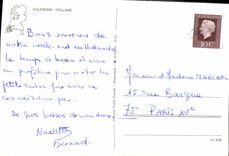 VOLENDAM / HOLLAND
Bons souvenirs de
notre week-end en Hollande
le temps est beau et nous
en profitons pour visiter les
petits coins que nous ne
connaissions pas.
De gros baisers de nous deux
Bernard
NEDERLAND
Monsieur et Madame
15 rue Bargue
75 PARIS XVe